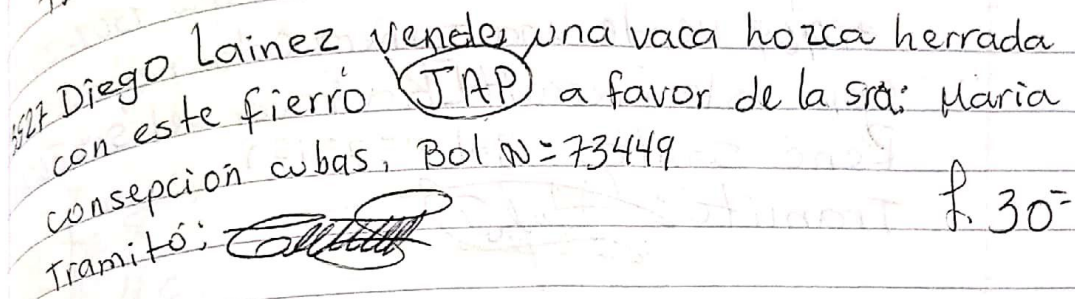 3527 Diego Lainez vende una vaca hozca herrada
con este fierro JAP a favor de la sra: Maria
consepcion cubas, Bol N=73449
f. 30=
Tramitó: